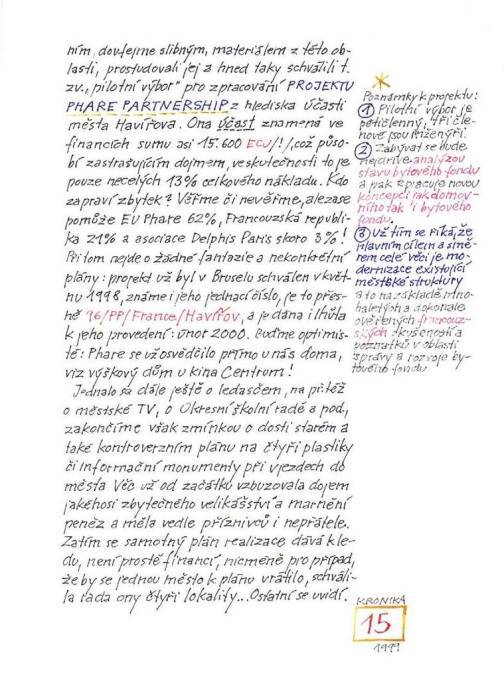 ním, doufejme slibným, materiálem z této ob-
lasti, prostudovali jej a hned taky schválili t.
zv. „pilotní výbor" pro zpracování PROJEKTU
PHARE PARTNERSHIP z hlediska účasti
města Havířova. Ona účast znamená ve
financích sumu asi 15.600 ECU /!/, což půso-
bí zastrašujícím dojmem, ve skutečnosti to je
pouze necelých 13% celkového nákladu. Kdo
zapraví zbytek? Věříme či nevěříme, ale zase
pomůže EU Phare 62%, Francouzská republi-
ka 21% a asociace Delphis Paris skoro 3%!
Při tom nejde o žádné fantazie a nekonkrétní
plány: projekt už byl v Bruselu schválen v květ-
nu 1998, známe i jeho jednací číslo, je to přes-
ně 96/PP/France/Havířov, a je dána i lhůta
k jeho provedení: únor 2000. Buďme optimis-
té: Phare se už osvědčilo přímo u nás doma,
viz výškový dům u kina Centrum!
Jednalo se dále ještě o ledasčem, na příkl
o městské TV, o Okresní školní radě a pod,
zakončíme však zmínkou o dosti starém a
také kontroverzním plánu na čtyři plastiky
či informační monumenty při vjezdech do
města Věc už od začátku vzbuzovala dojem
jakéhosi zbytečného velikášství a marnění
peněz a měla vedle příznivců i nepřátele.
Zatím se samotný plán realizace dává k le-
du, není prostě financí, nicméně pro případ,
že by se jednou město k plánu vrátilo, schváli-
la rada ony čtyři lokality... Ostatní se uvidí.
Poznámky k projektu:
1 Pilotní výbor je
pětičlenný, tři čle-
nové jsou inženýři.
2 Zabývat se bude
nejdříve analýzou
stavu bytového fondu
a pak zpracuje novou
koncepci jak domov-
ního tak i bytového
fondu.
3 Už tím se říká, že
hlavním cílem a smě-
rem celé věci je mo-
dernizace existující
městské struktury
a to na základě mno-
haletých a dokonale
ověřených francouz-
ských zkušeností a
poznatků v oblasti
správy a rozvoje by-
tového fondu
KRONIKA
15
1999